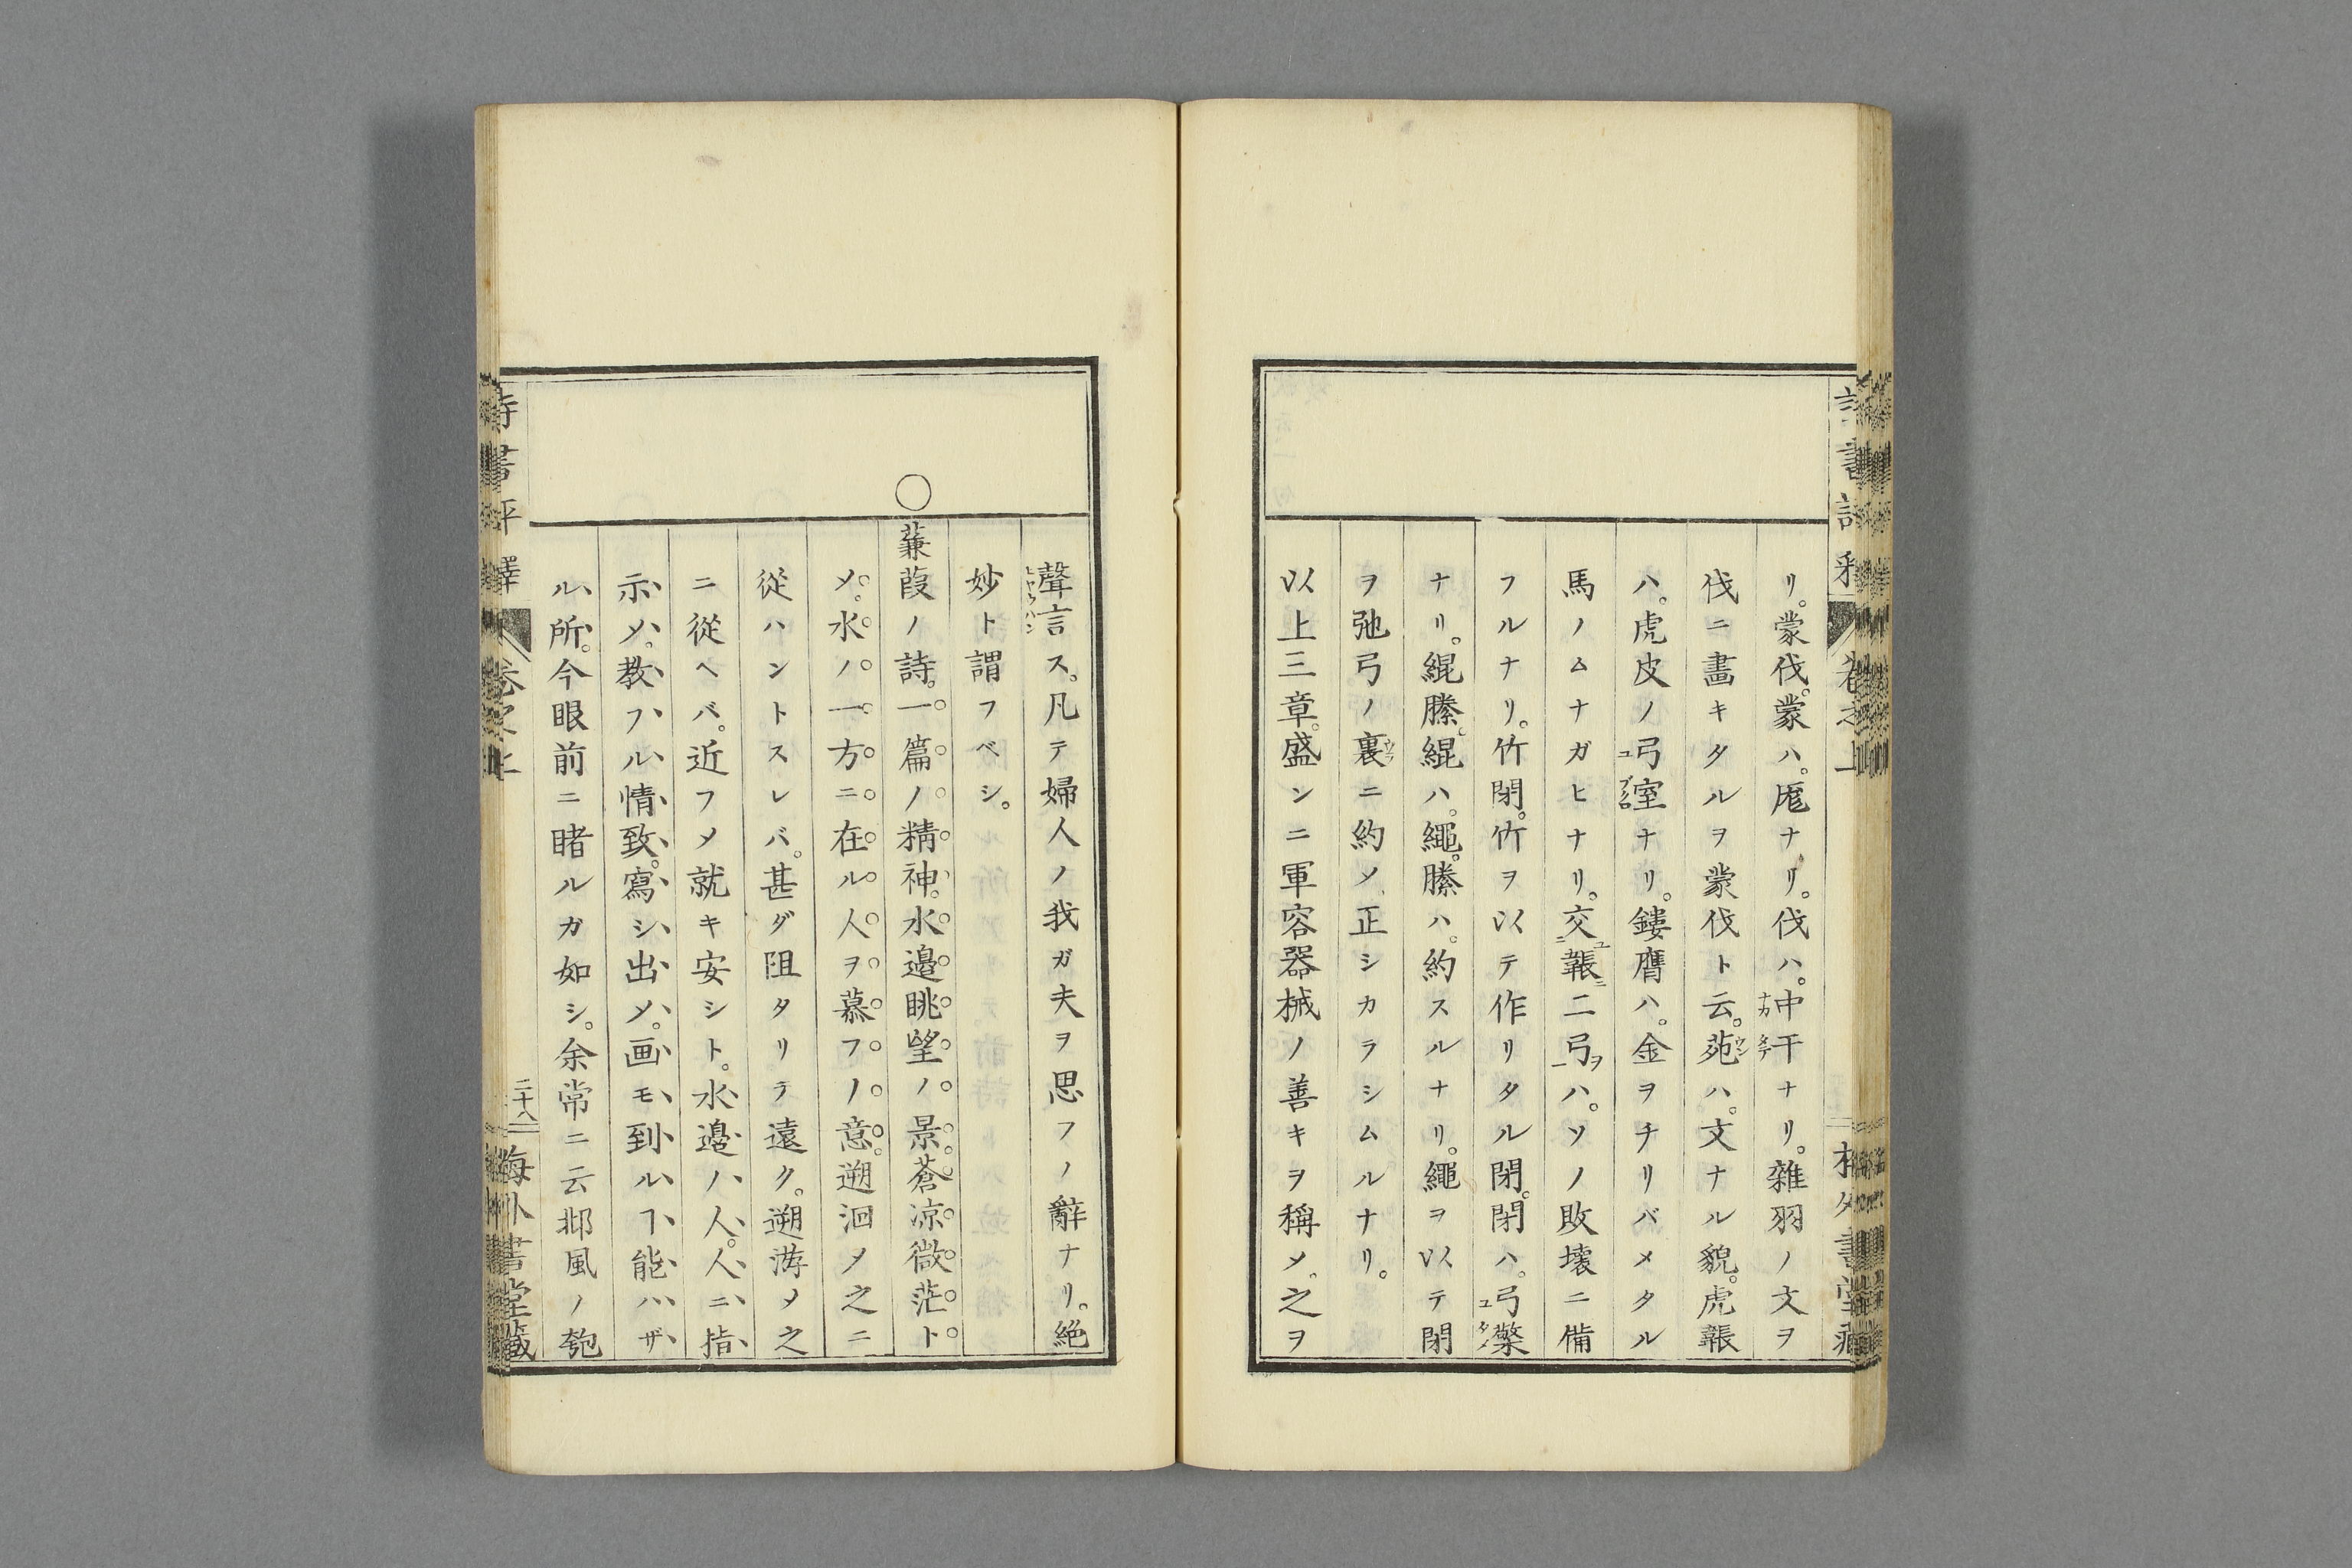 リ。蒙伐。蒙ハ。厖ナリ。伐ハ。中干ナリ。雜羽ノ文ヲ
伐ニ畫キタルヲ蒙伐ト云。苑ハ。文ナル貌。虎韔
ハ。虎皮ノ弓室ナリ。鏤膺ハ。金ヲチリバメタル
馬ノムナガヒナリ。交韔二弓ハ。ソノ敗壊ニ備
フルナリ。竹閉。竹ヲ以テ作リタル閉。閉ハ。弓檠
ナリ。緄縢。緄ハ。繩。縢ハ。約スルナリ。繩ヲ以テ閉
ヲ弛弓ノ裏ニ約メ、正シカラシムルナリ。
以上三章。盛ンニ軍容器械ノ善キヲ稱メ。之ヲ
聲言ス。凡テ婦人ノ我ガ夫ヲ思フノ辭ナリ。絶
妙ト謂フベシ。
〇蒹葭ノ詩。一篇ノ精神。水邉眺望ノ景。蒼凉微茫ト
メ。水ノ一方ニ在ル人ヲ慕フノ意。遡洄メ之ニ
從ハントスレバ。甚ダ阻タリテ遠ク。遡游メ之
ニ從ヘバ。近フメ就キ安シト。水邉ノ人。人ニ指
示メ。教フル情致。寫シ出メ。画モ到ルヿ能ハザ
ル所。今眼前ニ睹ルガ如シ。余常ニ云邶風ノ匏
二十八